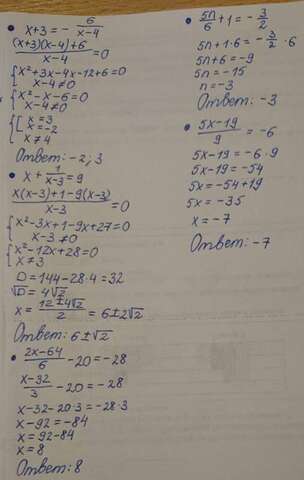 • x+3 = - 6/(x-4)
((x+3)(x-4)+6)/(x-4) = 0
{x²+3x-4x-12+6=0
x-4≠0
{x²-x-6=0
x-4≠0
{[x=3
x=-2
x≠4
Ответ: -2; 3
• x + 1/(x-3) = 9
(x(x-3)+1-9(x-3))/(x-3) = 0
{x²-3x+1-9x+27=0
x-3≠0
{x²-12x+28=0
x≠3
D=144-28·4=32
√D = 4√2
x = (12±4√2)/2 = 6±2√2
Ответ: 6±√2
• (2x-64)/6 - 20 = -28
(x-92)/3 - 20 = -28
x-32-20·3=-28·3
x-92=-84
x=92-84
x=8
Ответ: 8
• 5n/6 + 1 = - 3/2
5n+1·6 = - 3/2 · 6
5n+6=-9
5n=-15
n=-3
Ответ: -3
• (5x-19)/9 = -6
5x-19=-6·9
5x-19=-54
5x=-54+19
5x=-35
x=-7
Ответ: -7